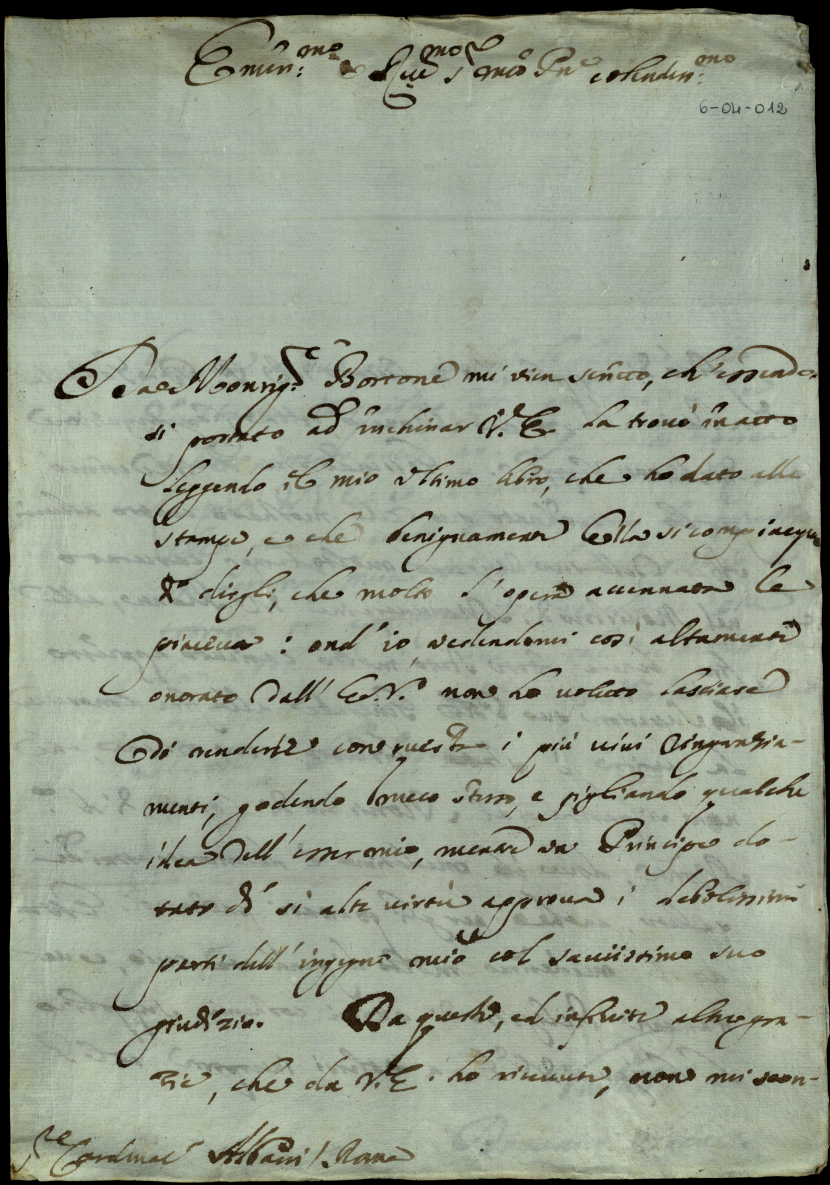 Emin:mo e Rev:mo Sr mio Pne colendis:mo
6-04-012
Da Monsig:re Bortone mi vien scritto, ch'essendo
si portato ad inchinar V.E. la trovò in atto
leggendo il mio ultimo libro, che ho dato alle
stampe, e che benignamente Ella si compiacque
di dirgli, che molto l'opera accennata le
piaceva: ond'io vedendomi così altamente
onorato dall'E.V. non ho voluto lasciare
di renderle con questa i più vivi ringrazia-
menti, godendo meco stesso, e pigliando qualche
idea dell'esser mio, mentre un Principe do-
tato di sì alte virtù approva i debolissimi
parti dell'ingegno mio col saviissimo suo
giudizio. Da queste, ed infinite altre gra-
zie, che da V.E. ho ricevute, non mi scon-
Sr Cardinal Albani / Roma